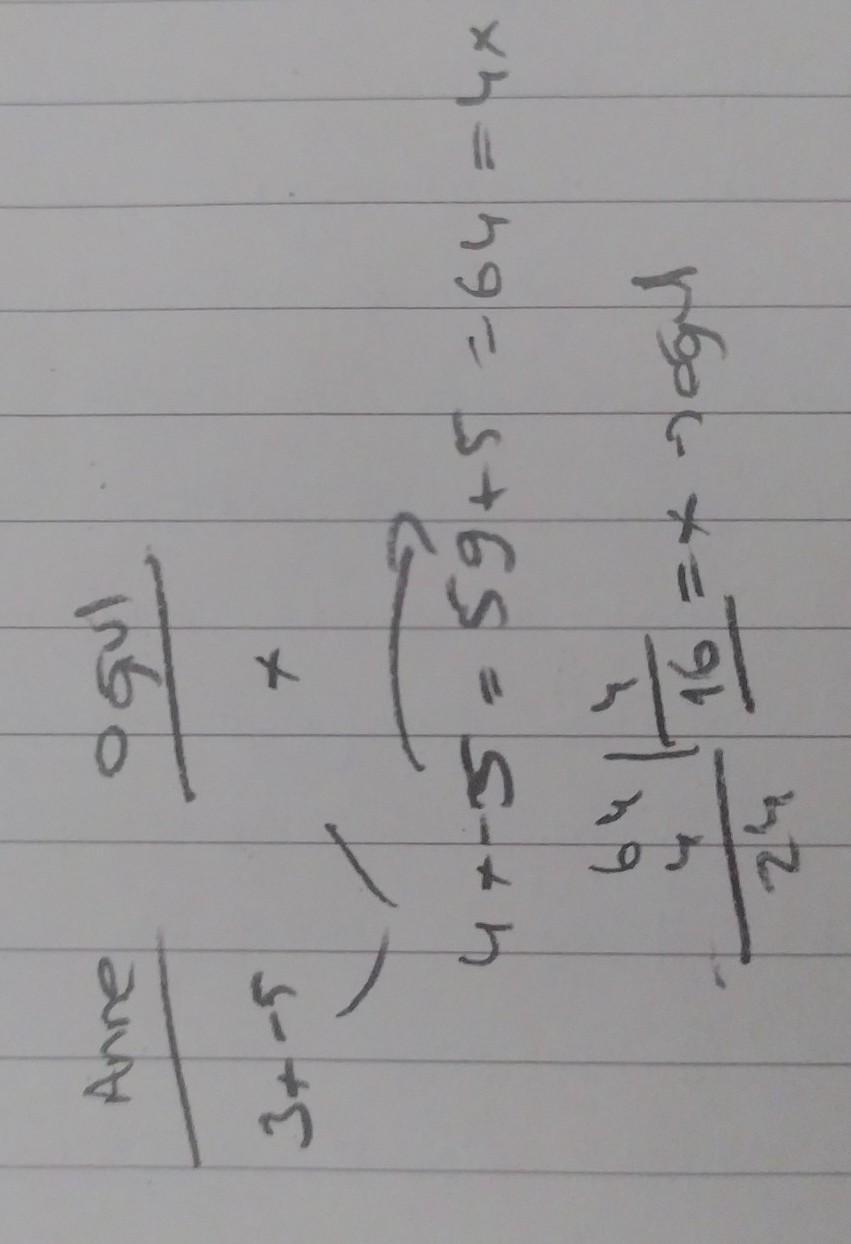 Anne oğul
3x-5 x
4x-5 = 59+5 = 64 = 4x
64 | 4
4 16 = x oğul
24